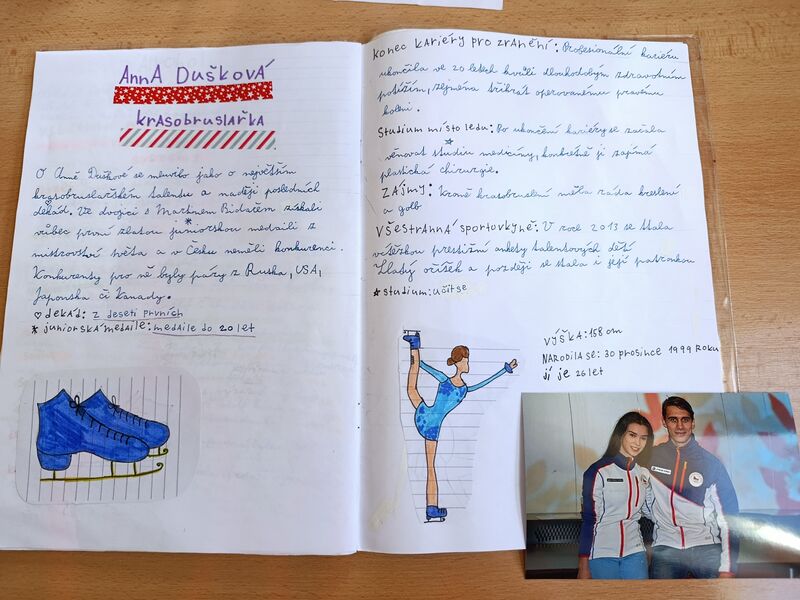 AnnA Dušková
krasobruslařka
O Anně Duškové se mluvilo jako o největším
krasobruslařském talentu a naději posledních
dekád. Ve dvojici s Martinem Bidařem získali
vůbec první zlatou juniorskou medaili z
mistrovství světa a v Česku neměli konkurenci.
Konkurenty pro ně byly páry z Ruska, USA,
Japonska či Kanady.
♡ dekád: z deseti prvních
* juniorská medaile: medaile do 20 let
Konec kariéry pro zranění: Profesionální kariéru
ukončila ve 20 letech kvůli dlouhodobým zdravotním
potížím, zejména třikrát operovanému pravému
koleni.
Studium místo ledu: Po ukončení kariéry se začala
věnovat studiu medicíny, konkrétně ji zajímá
plastická chirurgie.
Zájmy: Kromě krasobruslení měla ráda kreslení
a golf
Všestranná sportovkyně: V roce 2013 se stala
vítězkou prestižní ankety talentovaných dětí
Zlatý oříšek a později se stala i její patronkou
☆ studium: učit se
Výška: 158 cm
Narodila se: 30 prosince 1999 roku
jí je 26 let